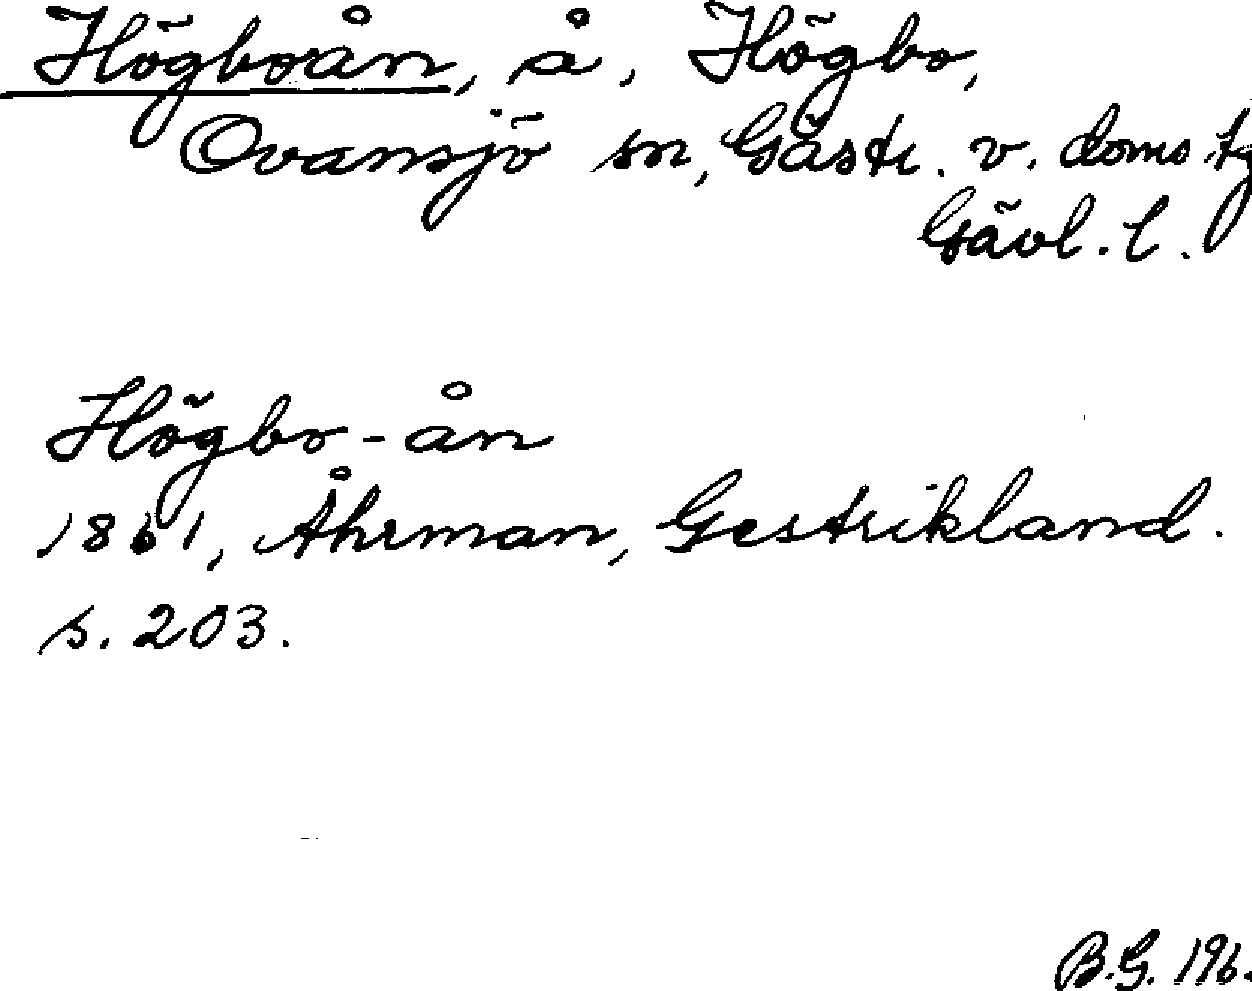 Högboån, å, Högbo,
Ovansjö sn, Gästr. v. doms tg
Gävl. l.
Högbo-ån
1861, Åhrman, Gestrikland.
s. 203.
B.G. 196.